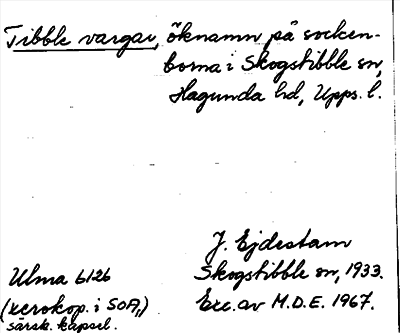 Tibble vargar, öknamn på socken-
borna i Skogstibble sn,
Hagunda hd, Upps. l.
J. Ejdestam
Ulma 6126 Skogstibble sn, 1933.
(xerokop. i SOA,) Exc. av M.D.E. 1967.
särsk. kapsel.